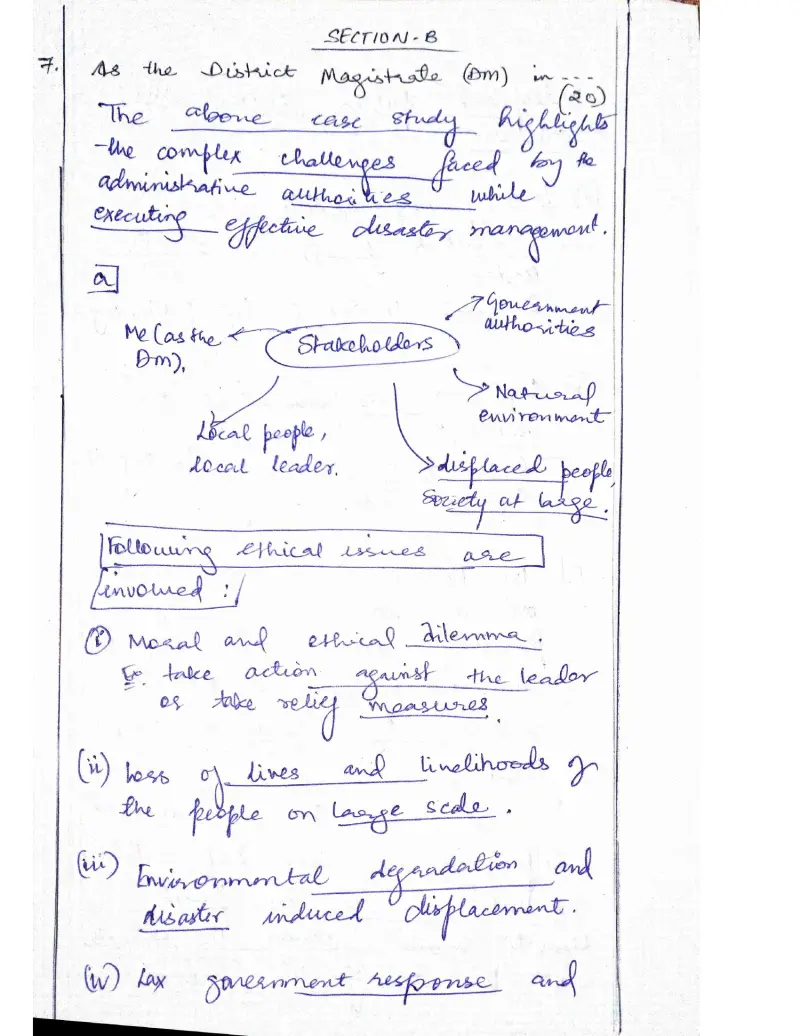 SECTION-B
7. As the District Magistrate (DM) in ....
(20)
The above case study highlights
the complex challenges faced by the
administrative authorities while
executing effective disaster management.
a
Government
authorities
Me (as the
DM).
Stakeholders
Natural
environment
Local people,
local leader.
displaced people,
Society at large.
Following ethical issues are
involved :
(i) Moral and ethical dilemma.
Eg. take action against the leader
or take relief measures.
(ii) Loss of lives and livelihoods of
the people on large scale.
(iii) Environmental degradation and
disaster induced displacement.
(iv) Lax government response and